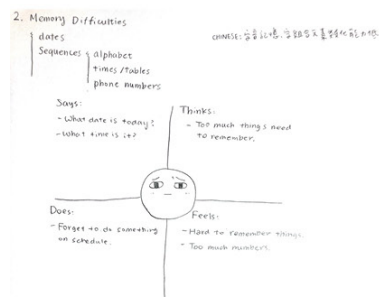 2. Memory Difficulties
dates
Sequences
alphabet
times/tables
phone numbers
CHINESE:
Says:
- What date is today?
- What time is it?
Thinks:
- Too much things need
to remember.
Does:
- Forget to do something
on schedule.
Feels:
- Hard to remember things.
- Too much numbers.